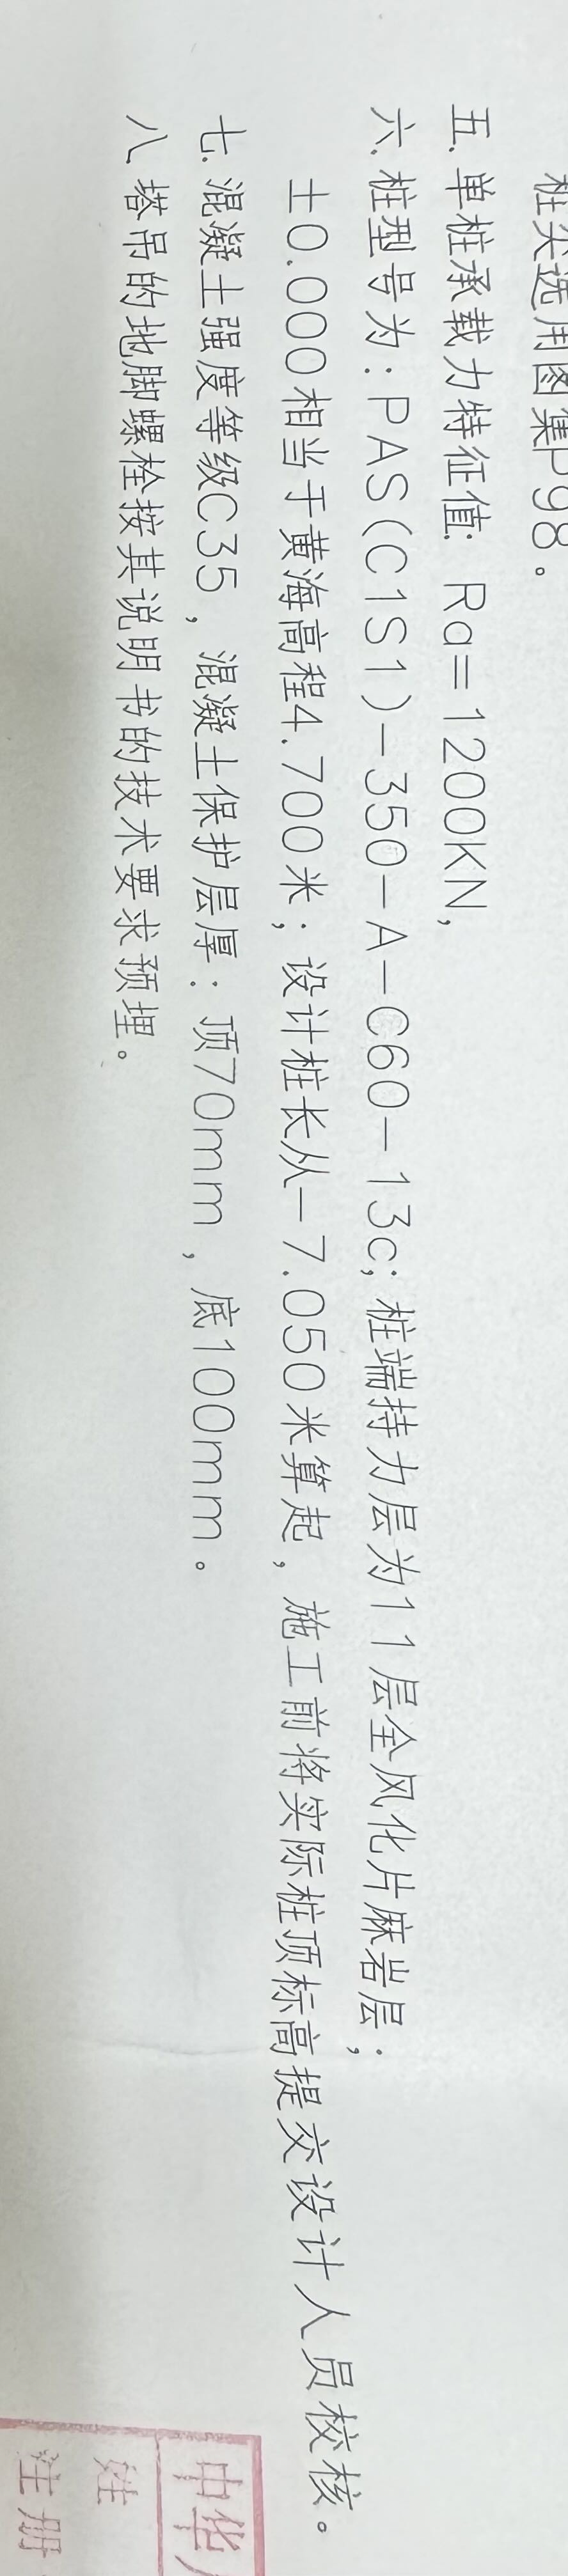 桩尖选用图集P98。
五.单桩承载力特征值: Ra=1200KN,
六.桩型号为:PAS(C1S1)-350-A-C60-13c;桩端持力层为11层全风化片麻岩层;
±0.000相当于黄海高程4.700米;设计桩长从-7.050米算起,施工前将实际桩顶标高提交设计人员校核。
七.混凝土强度等级C35,混凝土保护层厚:顶70mm,底100mm。
八.塔吊的地脚螺栓按其说明书的技术要求预埋。
中华
姓
注册